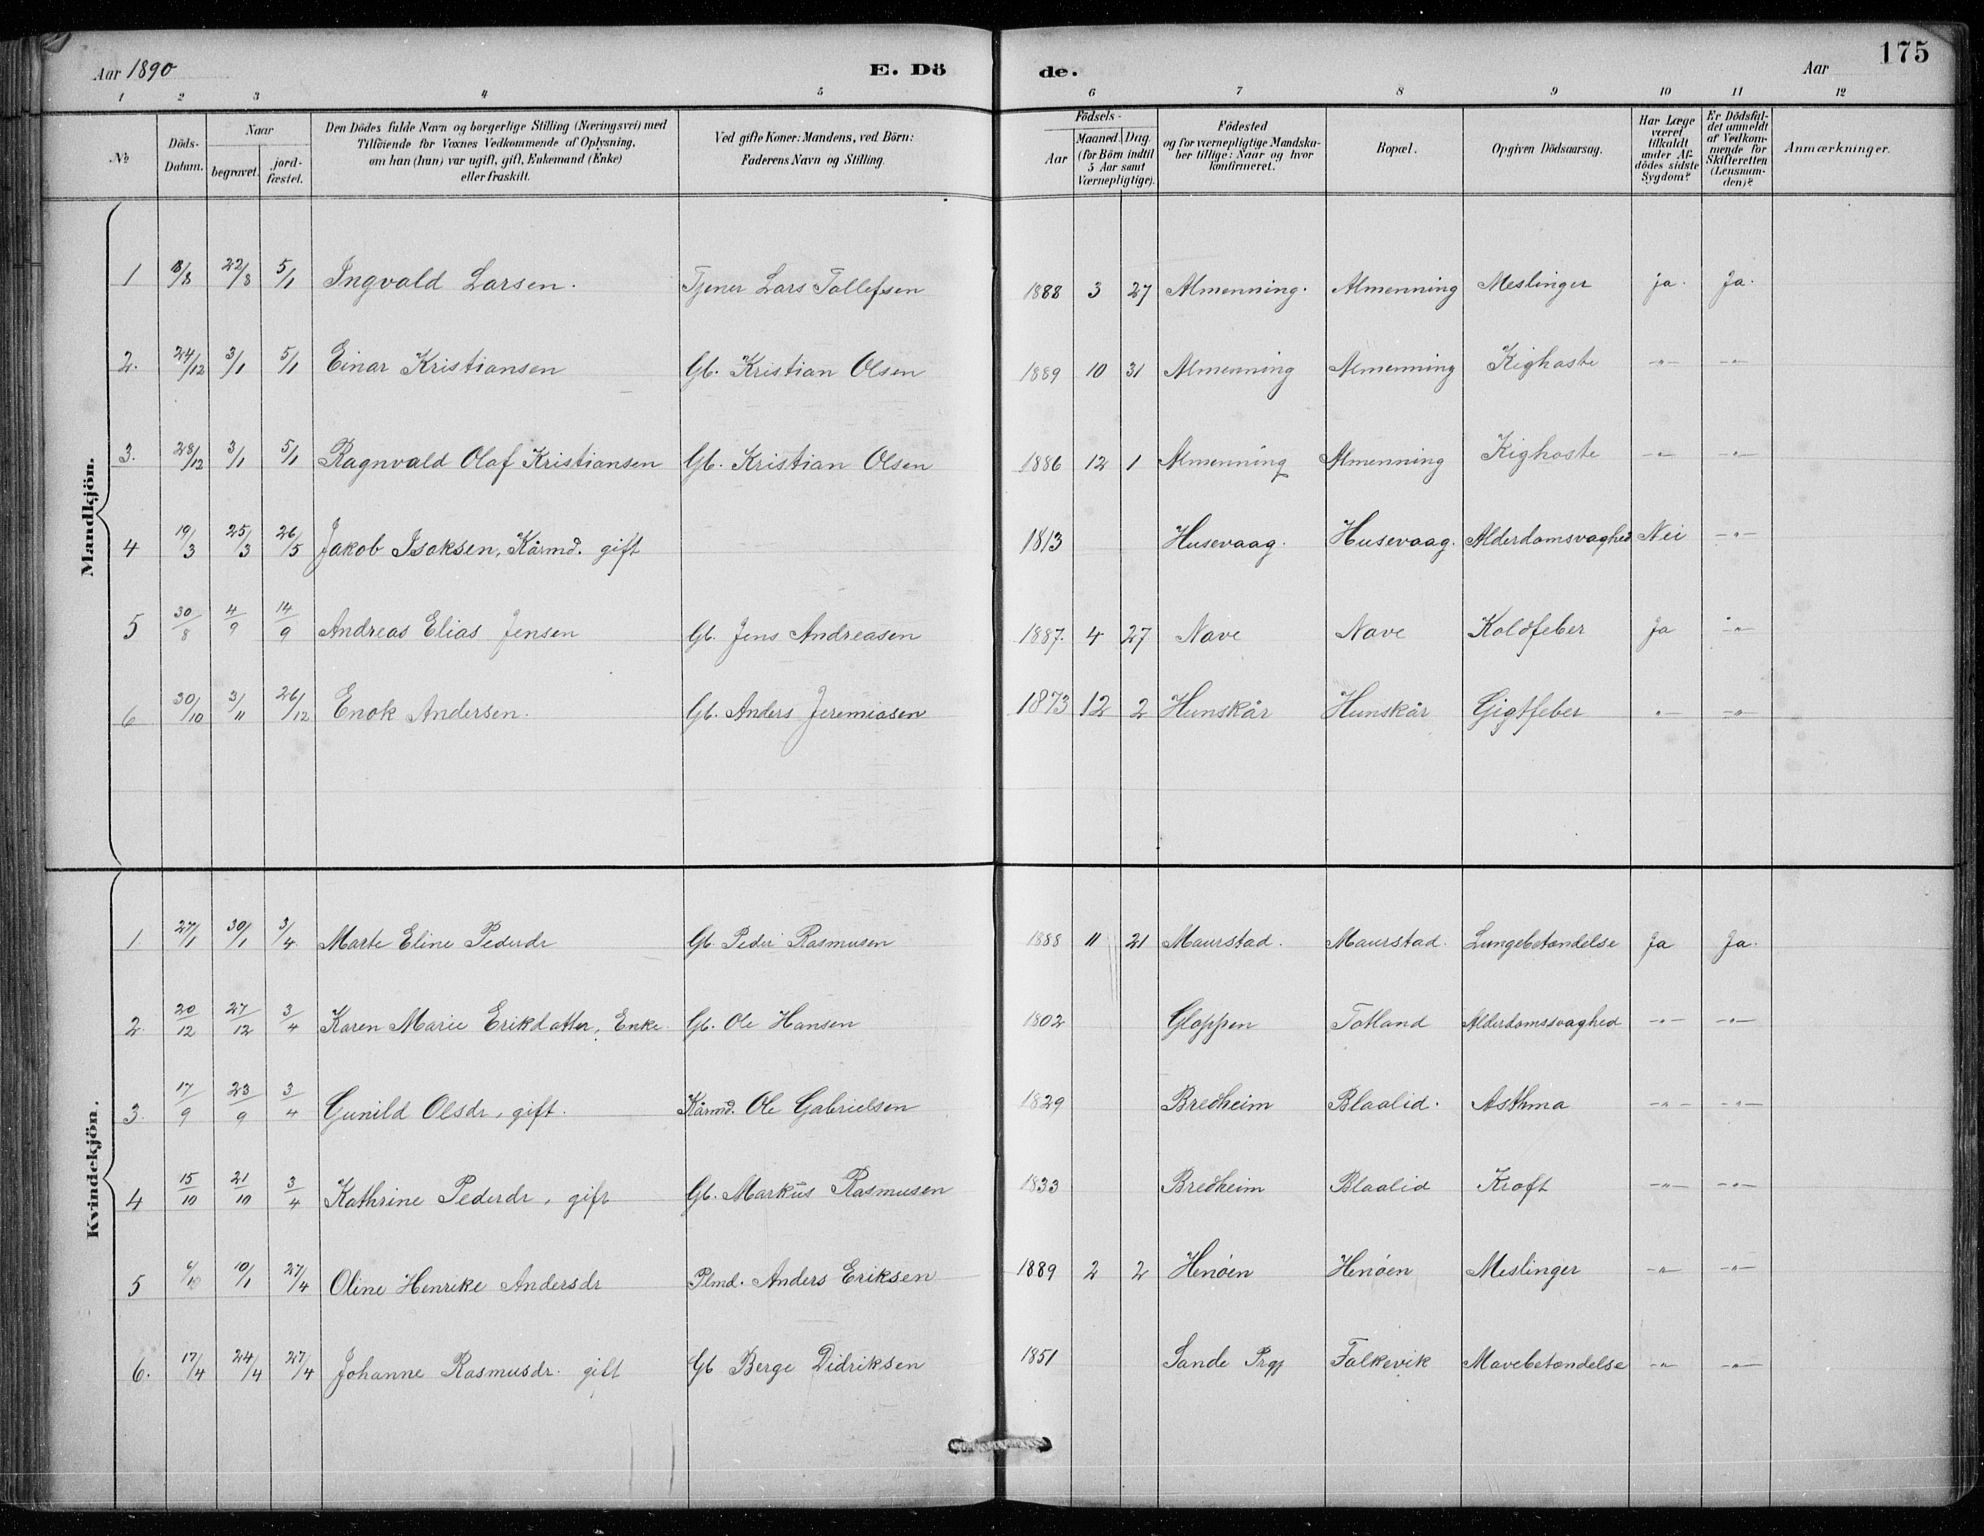 Aar 1890 E. Dö de. Aar 175
1 2 3 4 5 6 7 8 9 10 11 12
№ Döds-Datum. Naar begravet. jord-fæstet. Den Dödes fulde Navn og borgerlige Stilling (Næringsvei) med Tilföiende for Voxnes Vedkommende af Oplysning, om han (hun) var ugift, gift, Enkemand (Enke) eller fraskilt. Ved gifte Koner: Mandens, ved Börn: Faderens Navn og Stilling. Födsels- Aar Maaned. Dag. (for Börn indtil 5 Aar samt Værnepligtige). Födested og for værnepligtige Mandskaber tillige: Naar og hvor konfirmeret. Bopæl. Opgiven Dödsaarsag. Har Læge været tilkaldt under Afdödes sidste Sygdom? Er Dödsfaldet anmeldt af Vedkommende for Skifteretten (Lensmanden)? Anmærkninger.
Mandkjön.
1 8/8 22/8 5/1 Ingvald Larsen. Tjener Lars Tollefsen 1888 3 27 Almenning. Almenning Meslinger ja. Ja.
2. 24/12 3/1 5/1 Einar Kristiansen Gb. Kristian Olsen 1889 10 31 Almenning Almenning Kighoste -"- -"-
3. 28/12 3/1 5/1 Ragnvald Olaf Kristiansen Gb. Kristian Olsen 1886 12 1 Almenning Almenning Kighoste -"- -"-
4 19/3 25/3 26/5 Jakob Isaksen, Kårmd. gift 1813 Husevaag. Husevaag. Alderdomsvaghed Nei -"-
5 30/8 4/9 14/9 Andreas Elias Jensen Gb. Jens Andreasen 1887. 4 27 Nave Nave Koldfeber Ja -"-
6 30/10 3/11 26/12 Enok Andersen. Gb. Anders Jeremiasen 1873 12 2 Hunskår Hunskår Gigtfeber -"- -"-
Kvindekjön.
1 27/1 30/1 3/4. Marte Eline Pedersdr Gb. Peder Rasmusen 1888 11 21 Maurstad. Maurstad. Lungebetændelse Ja Ja.
2. 20/12 27/12 3/4 Karen Marie Erikdatter, Enke Gb. Ole Hansen 1802 Gloppen Totland Alderdomssvaghed -"- -"-
3. 17/9 23/9 3/4 Gunild Olsdr, gift. Kårmd. Ole Gabrielsen 1829 Bredheim Blaalid. Asthma -"- -"-
4 15/10 21/10 3/4 Kathrine Pedersdr, gift Gb. Markus Rasmusen 1833 Bredheim Blaalid Kræft -"- -"-
5 10/1 27/4 Oline Henrike Andersdr Plmd. Anders Eriksen 1889 2 2 Henøen Henøen Meslinger -"- -"-
6. 17/4 24/4 27/4 Johanne Rasmusdr. gift Gb Berge Didriksen 1851 Sande Prgj Falkevik Mavebetændelse -"- -"-